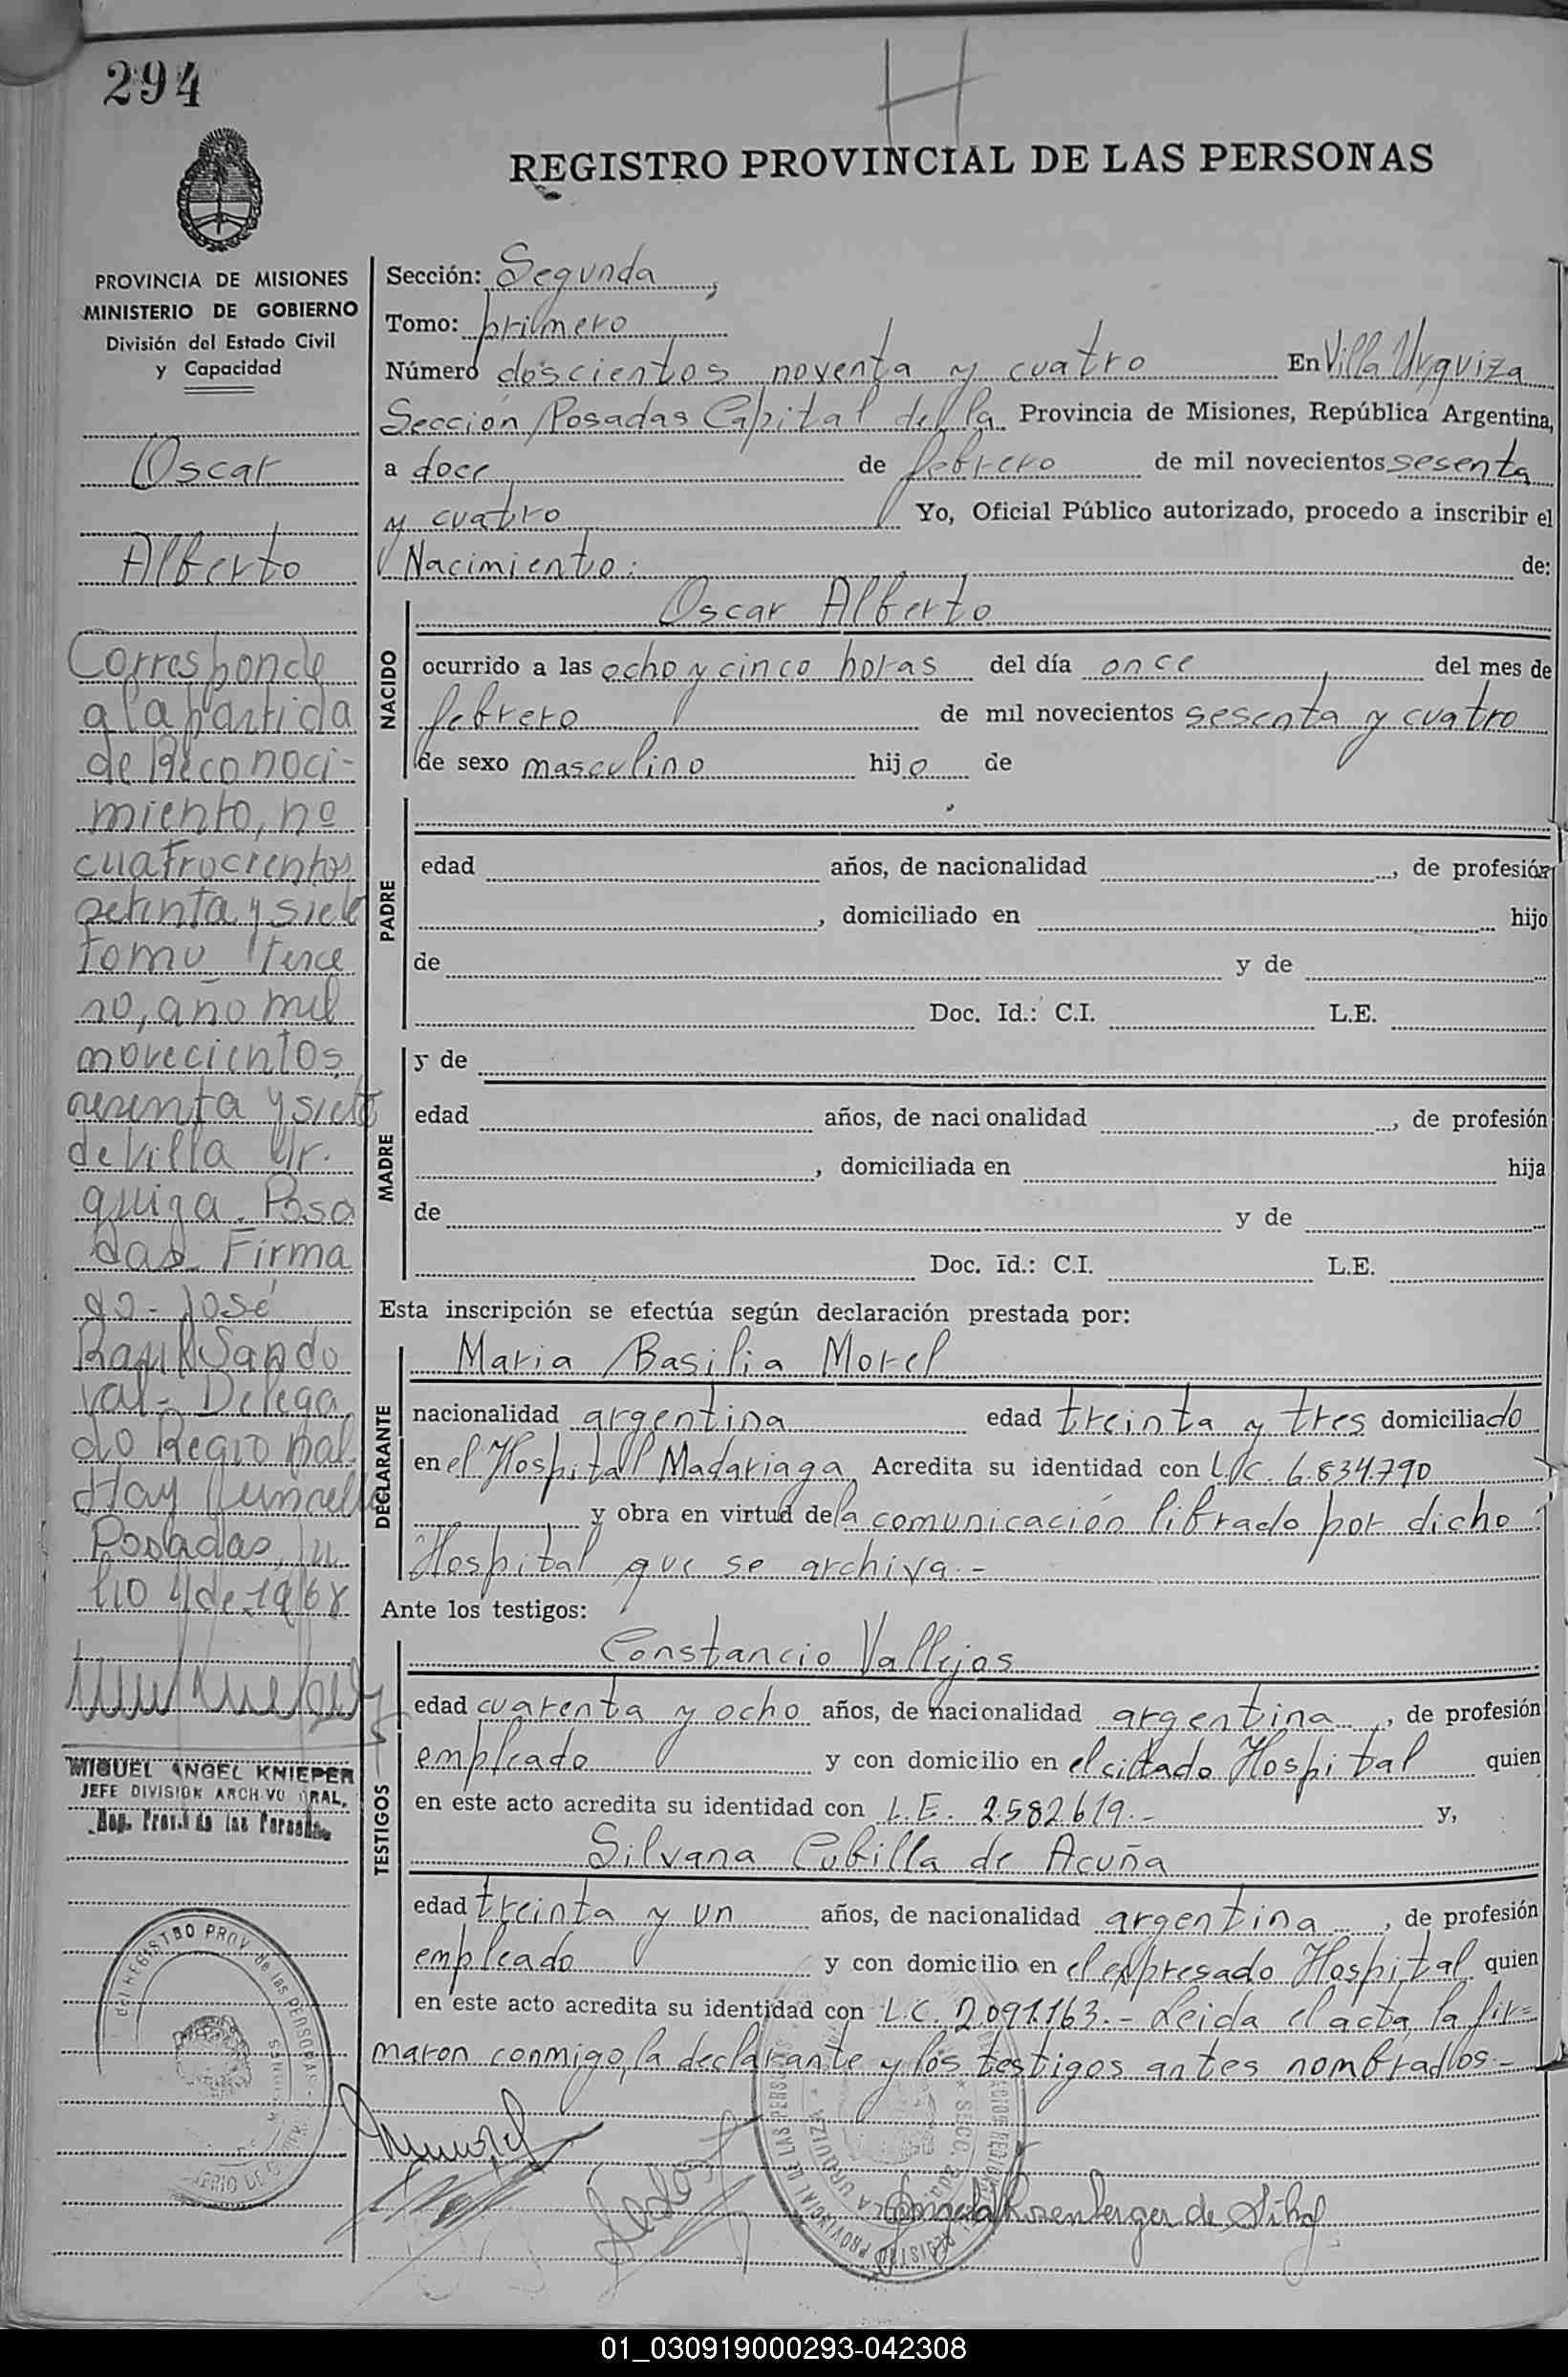 294
H
REGISTRO PROVINCIAL DE LAS PERSONAS
PROVINCIA DE MISIONES
MINISTERIO DE GOBIERNO
División del Estado Civil
y Capacidad
Oscar
Alberto
Corresponde
a la partida
de Reconoci-
miento, nº
cuatrocientos
setenta y siete
tomo Terce
ro, año mil
novecientos
sesenta y siete
de Villa Ur-
quiza. Posa
das. Firma
do - José
Raul Sando
val - Delega
do Regional.
Hay
Posadas, ju
lio 4 de 1968
MIGUEL ANGEL KNIEPER
JEFE DIVISION ARCHIVO GRAL.
Reg. Prov. de las Personas
Sección: Segunda,
Tomo: primero
Número doscientos noventa y cuatro En Villa Urquiza
Sección Posadas Capital de la Provincia de Misiones, República Argentina,
a doce de febrero de mil novecientos sesenta
y cuatro Yo, Oficial Público autorizado, procedo a inscribir el
Nacimiento: de:
NACIDO
Oscar Alberto
ocurrido a las ocho y cinco horas del día once del mes de
febrero de mil novecientos sesenta y cuatro
de sexo masculino hijo de
PADRE
edad años, de nacionalidad , de profesión
, domiciliado en hijo
de y de
Doc. Id.: C.I. L.E.
MADRE
y de
edad años, de nacionalidad , de profesión
, domiciliada en hija
de y de
Doc. Id.: C.I. L.E.
Esta inscripción se efectúa según declaración prestada por:
DECLARANTE
Maria Basilia Morel
nacionalidad argentina edad treinta y tres domiciliado
en el Hospital Madariaga, Acredita su identidad con L.C. 6.834.790
y obra en virtud de la comunicación librado por dicho
Hospital que se archiva.-
Ante los testigos:
TESTIGOS
Constancio Vallejos
edad cuarenta y ocho años, de nacionalidad argentina, de profesión
empleado y con domicilio en el citado Hospital quien
en este acto acredita su identidad con L.E. 2.582.619.- y,
Silvana Cubilla de Acuña
edad treinta y un años, de nacionalidad argentina, de profesión
empleado y con domicilio en el expresado Hospital quien
en este acto acredita su identidad con L.C. 2.091.163.- Leida el acta, la fir=
maron conmigo, la declarante y los testigos antes nombrados.-
del REGISTRO PROV. de las PERSONAS
REGISTRO PROVINCIAL DE LAS PERSONAS
SECC. 2da.
VILLA URQUIZA
01_030919000293-042308